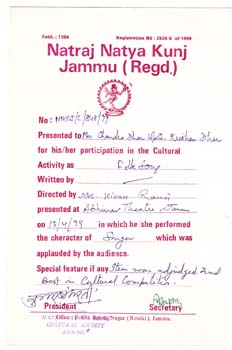 Estd. : 1984 Registration NO : 2520-S of 1996
Natraj Natya Kunj
Jammu (Regd.)
No :
Presented to Chandra Dhar Krishan Dhar
for his/her participation in the Cultural
Activity as Folk Song
Written by
Directed by Mrs. Kiran
presented at Abhinav Theatre, Jammu
on in which he she performed
the character of Singer which was
applauded by the audience.
Special feature if any Item was adjudged 2nd
Best in Cultural Competition.
President Secretary
Office : Nagar Jammu.
CULTURAL SOCIETY
JAMMU